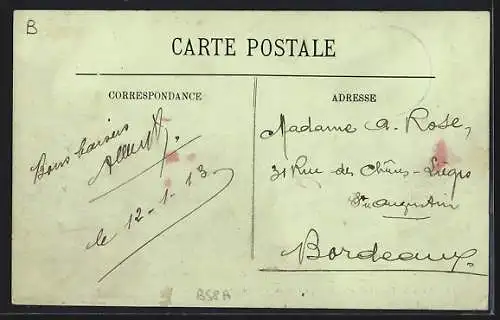 B
CARTE POSTALE
CORRESPONDANCE
ADRESSE
Bons baisers
le 12-1-13
Madame A. Rose,
31 Rue des Chênes-Lièges
St Augustin
Bordeaux.
B58A